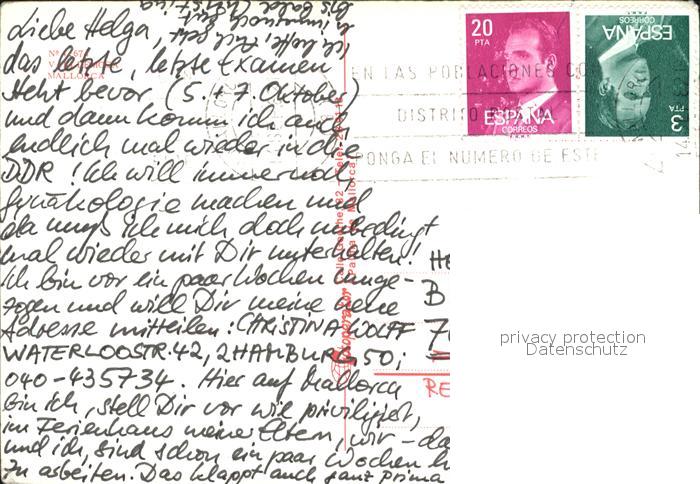 Liebe Helga,
das letzte, letzte Examen
steht bevor (5. + 7. Oktober)
und dann komm ich auch
endlich mal wieder in die
DDR! Ich will immer noch
Gynäkologie machen und
da muß ich mich doch unbedingt
mal wieder mit Dir unterhalten!
Ich bin vor ein paar Wochen umge-
zogen und will Dir meine neue
Adresse mitteilen: CHRISTINA WOLFF
WATERLOOSTR. 42, 2 HAMBURG 50;
040-435734. Hier auf Mallorca
bin ich, stell Dir vor wie priviligiert,
im Ferienhaus meiner Eltern, wir - da
und ich, sind schon ein paar Wochen h
zu arbeiten. Das klappt auch ganz prima
bis bald Christina
ich hoffe, Dir geht
MALLORCA
20
PTA
ESPAÑA
CORREOS
ESPAÑA
CORREOS
3
PTA
EN LAS POBLACIONES CO
DISTRITO
PONGA EL NUMERO DE ESTE
B
RE
privacy protection
Datenschutz